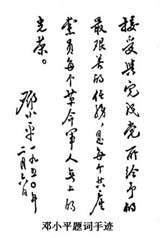 接受与完成党所给予的
最艰苦的任务,是每个共产
党员每个革命军人无上的
光荣。
邓小平
一九五〇年
二月六日
邓小平题词手迹